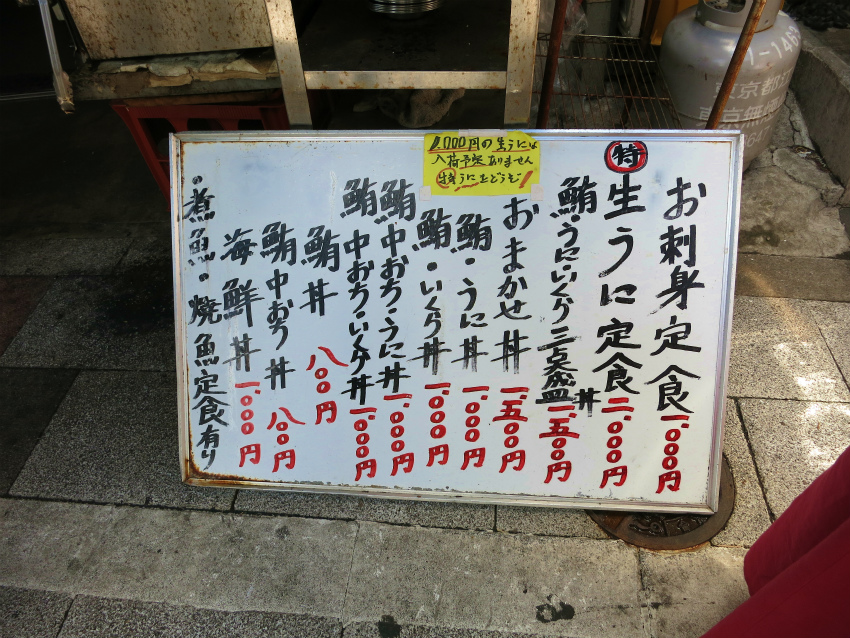 1,000円の生うには
入荷予定ありません
特うにをどうぞ!
お刺身定食 一、000円
特 生うに定食 二、000円
鮪・うに・いくら三点盛丼 一、五00円
おまかせ丼 一、五00円
鮪・うに丼 一、000円
鮪・いくら丼 一、000円
鮪中おち・うに丼 一、000円
鮪中おち・いくら丼 一、000円
鮪丼 八00円
鮪中おち丼 八00円
海鮮丼 一、000円
・煮魚・焼魚定食有り
1-1462
東京都